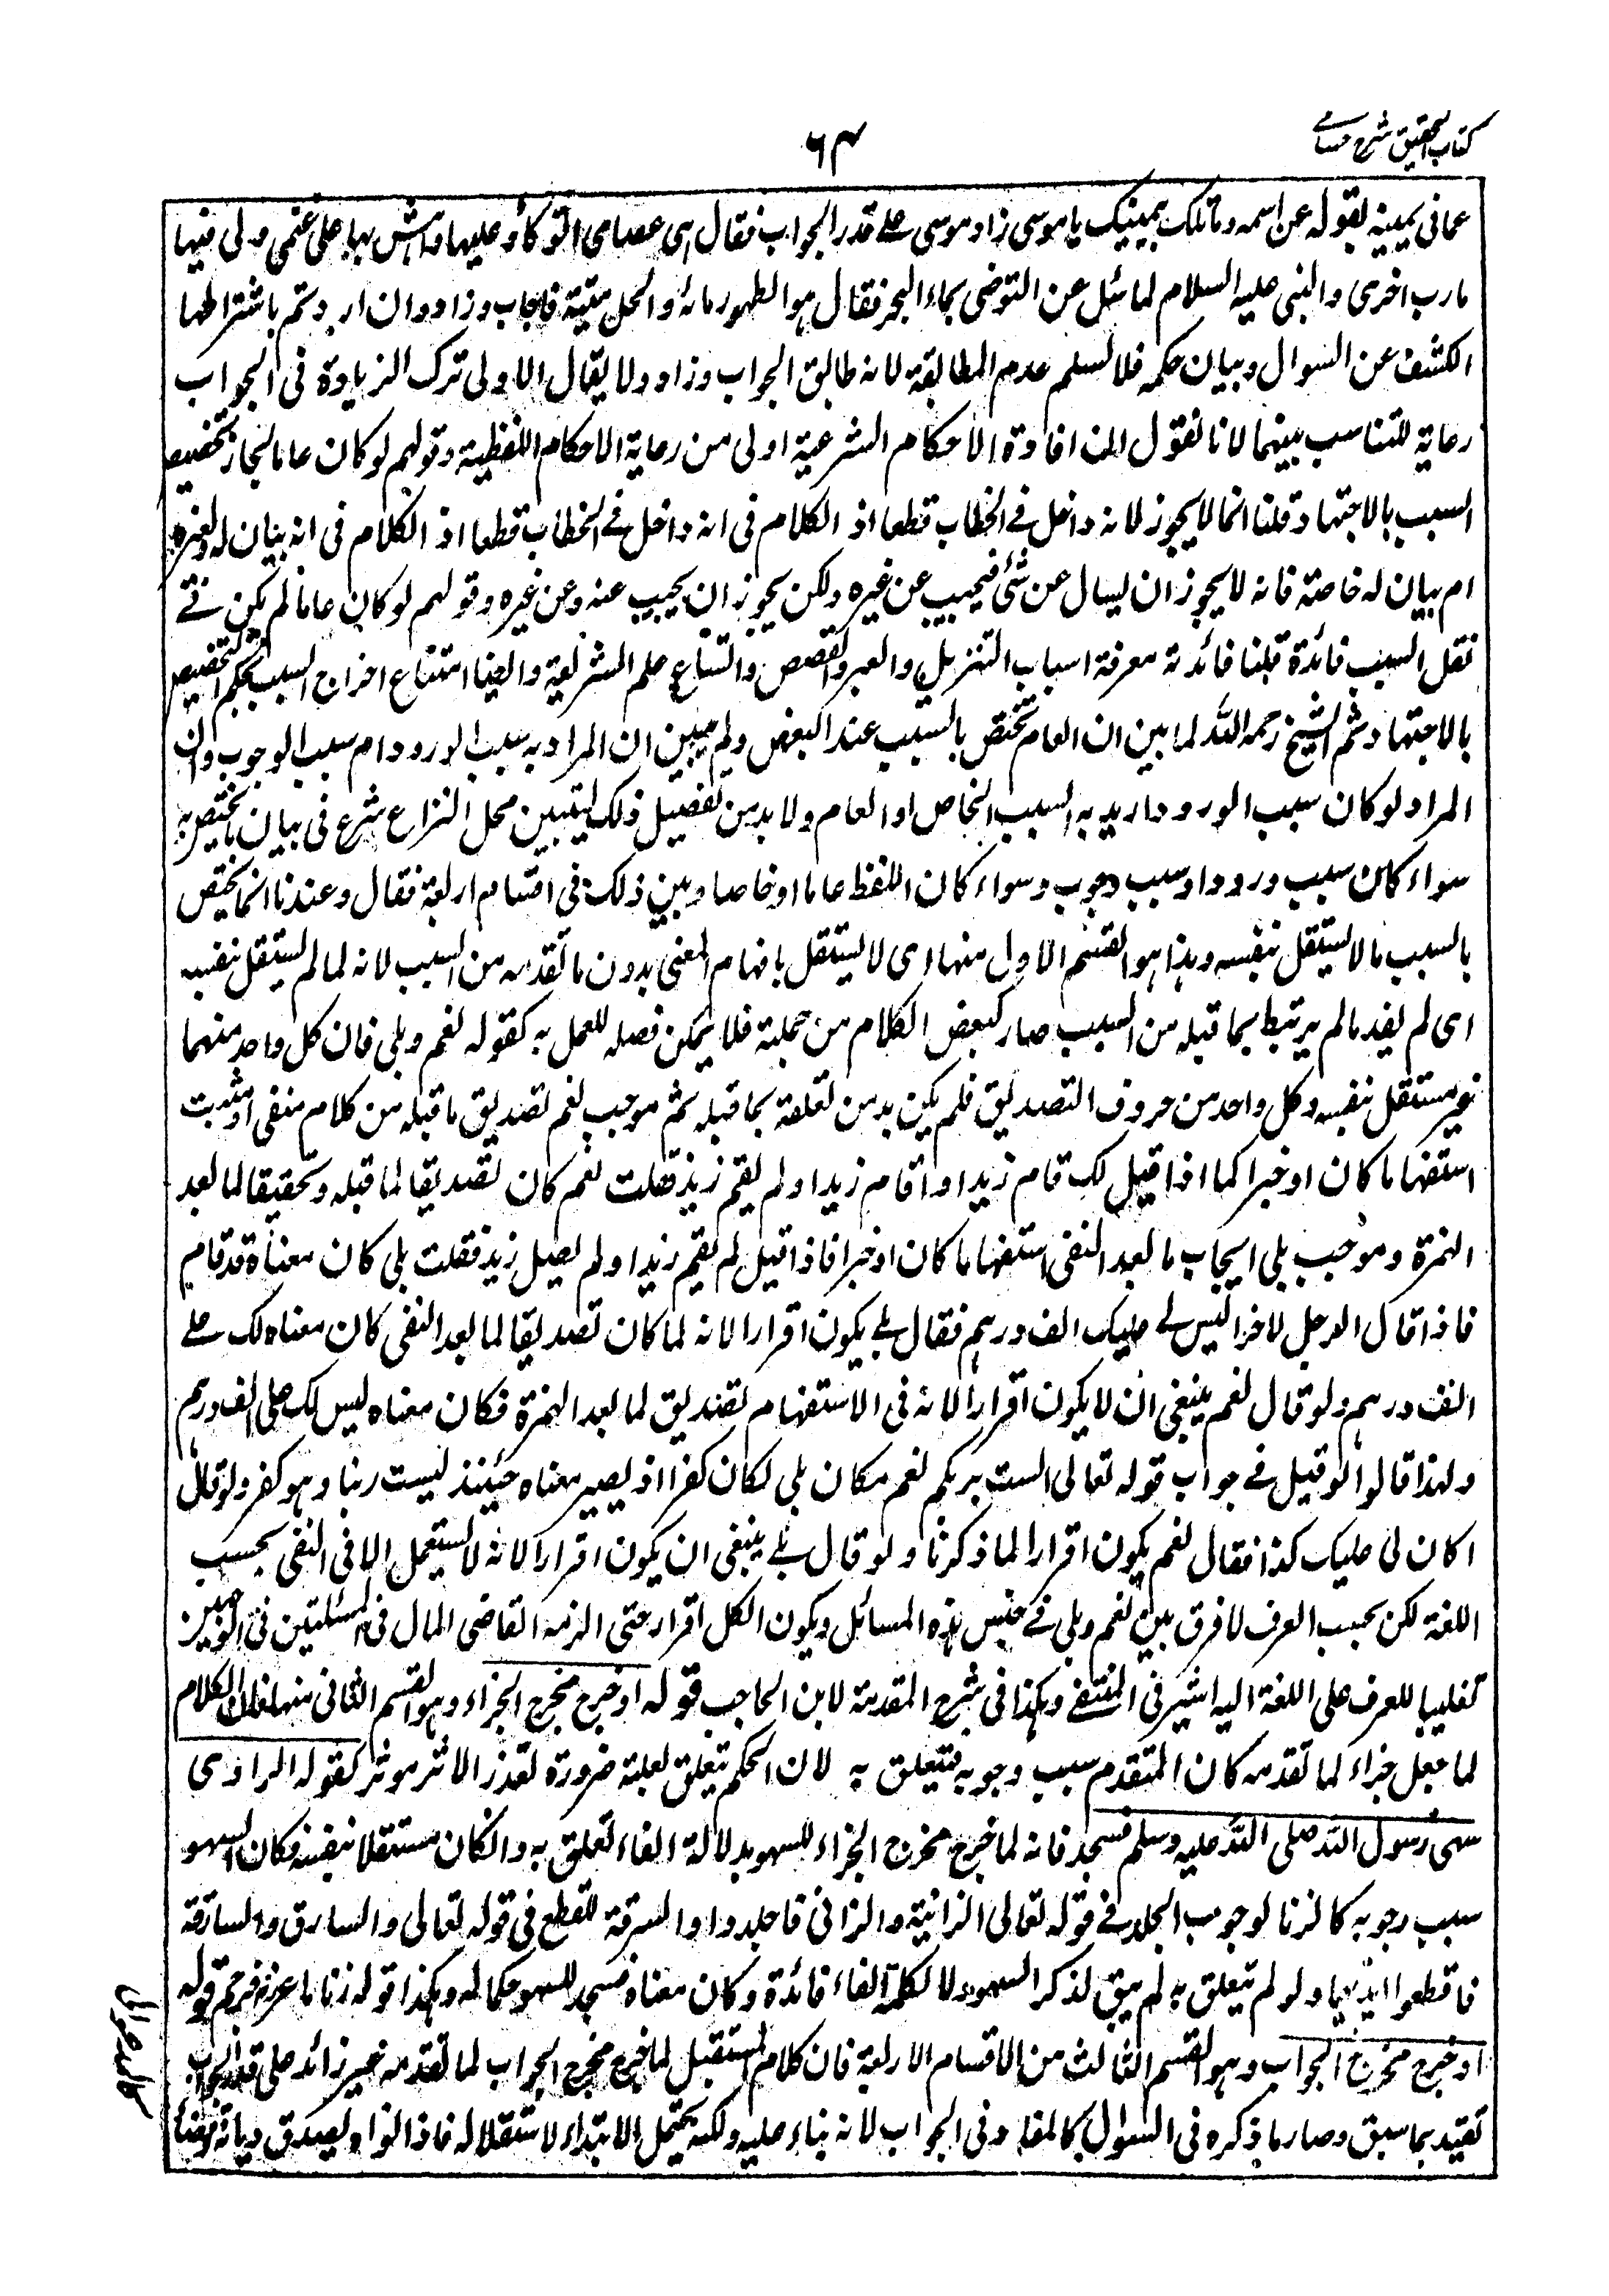 كتاب التحقيق شرح حسامى
٦٣
عما فى يمينه بقوله عن اسمه وما تلك بيمينك يا موسى زاد موسى على قدر الجواب فقال هى عصاى اتوكأ عليها واهش بها على غنمى ولى فيها
مارب اخرى والنبى عليه السلام لما سئل عن التوضى بماء البحر فقال هو الطهور ماؤه والحل ميتته فاجاب وزاد وان اردتم باشتراطها
الكشف عن السوال وبيان حكمه فلا نسلم عدم المطابقة لانه طابق الجواب وزاد ولا يقال الاولى ترك الزيادة فى الجواب
رعاية للتناسب بينهما لانا نقول ان افادة الاحكام الشرعية اولى من رعاية الاحكام اللفظية وقولهم لو كان عاما لجاز تخصيص
السبب بالاجتهاد قلنا انما لا يجوز لانه داخل فى الخطاب قطعا اذ الكلام فى انه داخل فى الخطاب قطعا اذ الكلام فى انه بيان له ولغيره
ام بيان له خاصة فانه لا يجوز ان يسال عن شئ فيجيب عن غيره ولكن يجوز ان يجيب عنه وعن غيره وقولهم لو كان عاما لم يكن فى
نقل السبب فائدة قلنا فائدته معرفة اسباب التنزيل والسير والقصص واتساع علم الشريعة وايضا امتناع اخراج السبب بحكم التخصيص
بالاجتهاد ثم الشيخ رحمه الله لما بين ان العام يختص بالسبب عند البعض ولم يبين ان المراد به سبب الورود ام سبب الوجوب وان
المراد لو كان سبب الورود اريد به السبب الخاص او العام ولا بد من تفصيل ذلك ليتبين محل النزاع شرع فى بيان ما يختص به
سواء كان سبب ورود او سبب وجوب وسواء كان اللفظ عاما او خاصا وبين ذلك فى اقسام اربعة فقال وعندنا انما يختص
بالسبب ما لا يستقل بنفسه وهذا هو القسم الاول منها اى لا يستقل بافهام المعنى بدون ما تقدمه من السبب لانه لما لم يستقل بنفسه
اى لم يفد ما لم يرتبط بما قبله من السبب صار كبعض الكلام من جملته فلا يمكن فصله للعمل به كقوله نعم وبلى فان كل واحد منهما
غير مستقل بنفسه وكل واحد من حروف التصديق فلم يكن بد من تعلقه بما قبله ثم موجب نعم تصديق ما قبله من كلام منفى او مثبت
استفهاما كان او خبرا كما اذا قيل لك قام زيد او اقام زيد او لم يقم زيد فقلت نعم كان تصديقا لما قبله وتحقيقا لما بعد
الهمزة وموجب بلى ايجاب ما بعد النفى استفهاما كان او خبرا فاذا قيل لم يقم زيد او لم يصل زيد فقلت بلى كان معناه قد قام
فاذا قال الرجل لاخر اليس لى عليك الف درهم فقال بلى يكون اقرارا لانه لما كان تصديقا لما بعد النفى كان معناه لك على
الف درهم ولو قال نعم ينبغى ان لا يكون اقرارا لانه فى الاستفهام تصديق لما بعد الهمزة فكان معناه ليس لك على الف درهم
ولهذا قالوا لو قيل فى جواب قوله تعالى الست بربكم نعم مكان بلى لكان كفرا اذ يصير معناه حينئذ ليست ربنا وهو كفر ولو قال
اكان لى عليك كذا فقال نعم يكون اقرارا لما ذكرنا ولو قال بلى ينبغى ان يكون اقرارا لانه لا يستعمل الا فى النفى بحسب
اللغة لكن بحسب العرف لا فرق بين نعم وبلى فى جنس هذه المسائل ويكون الكل اقرارا حتى الزمه القاضى المال فى المسئلتين فى الوجهين
تغليبا للعرف على اللغة اليه اشير فى المنتقى وهكذا فى شرح المقدمة لابن الحاجب قوله او خرج مخرج الجزاء وهو القسم الثانى منها فان الكلام
لما جعل جزاء لما تقدمه كان المتقدم سبب وجوبه فيتعلق به لان الحكم يتعلق بعلته ضرورة تعذر الاثر موثر كقوله الراوى
سهى رسول الله صلى الله عليه وسلم فسجد فانه لما خرج مخرج الجزاء للسهو بدلالة الفاء تعلق به وانكان مستقلا بنفسه فكان السهو
سبب وجوبه كالزنا لوجوب الجلد فى قوله تعالى الزانية والزانى فاجلدوا والسرقة للقطع فى قوله تعالى والسارق والسارقة
فاقطعوا ايديهما ولو لم يتعلق به لم يبق لذكر السهو ولا لكلمة الفاء فائدة وكان معناه فسجد للسهو حكما له وهكذا قوله زنا ماعز فرجم قوله
او خرج مخرج الجواب وهو القسم الثالث من الاقسام الاربعة فان كلام المستقبل لما خرج مخرج الجواب لما تقدمه غير زائد على قدر الجواب
تقيد بما سبق وصار ما ذكره فى السوال كالمعاد فى الجواب لانه بناء عليه ولكنه يحتمل الابتداء لاستقلاله فاذا نواه يصدق ديانة وقضاء